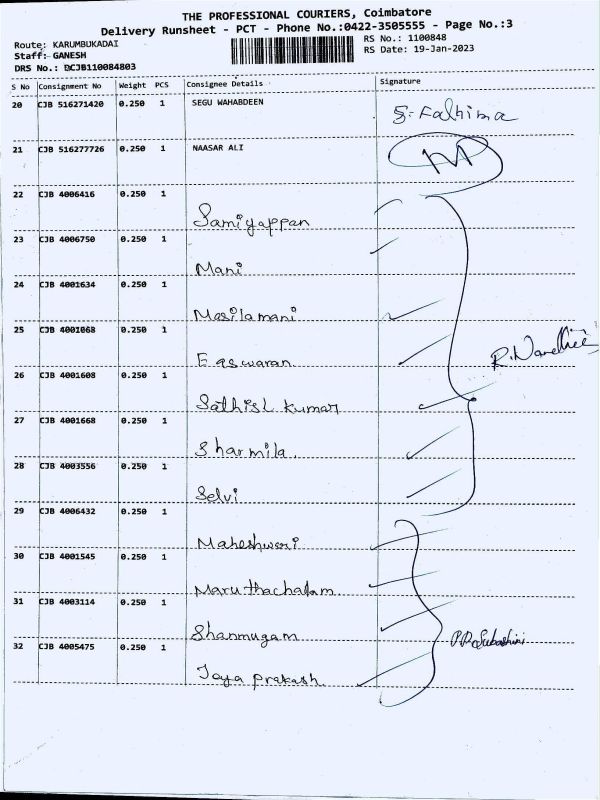 THE PROFESSIONAL COURIERS, Coimbatore
Delivery Runsheet - PCT - Phone No.:0422-3505555 - Page No.:3
Route: KARUMBUKADAI
RS No.: 1100848
Staff: GANESH
RS Date: 19-Jan-2023
DRS No.: DCJB110084803
S No Consignment No Weight PCS Consignee Details Signature
20 CJB 516271420 0.250 1 SEGU WAHABDEEN
S. Fathima
21 CJB 516277726 0.250 1 NAASAR ALI
22 CJB 4006416 0.250 1 Samiyappan
23 CJB 4006750 0.250 1 Mani
24 CJB 4001634 0.250 1 Masilamani
25 CJB 4001068 0.250 1 Easwaran
26 CJB 4001608 0.250 1 Sathish kumar
27 CJB 4001668 0.250 1 Sharmila.
28 CJB 4003556 0.250 1 Selvi
29 CJB 4006432 0.250 1 Maheshwari
30 CJB 4001545 0.250 1 Maruthachalam
31 CJB 4003114 0.250 1 Shanmugam
32 CJB 4005475 0.250 1 Jaya prakash